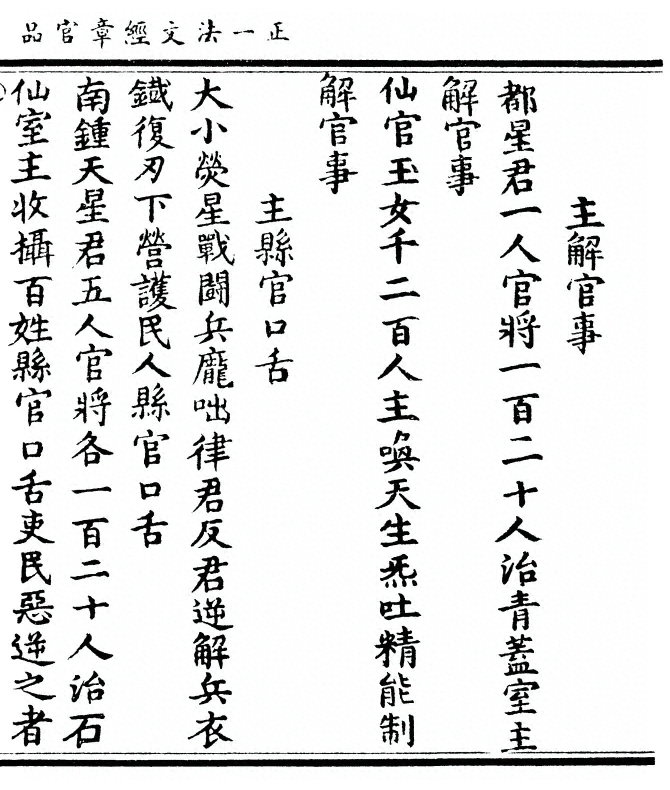 正一法文經章官品
主解官事
都星君一人官將一百二十人治青蓋室主
解官事
仙官玉女千二百人主喚天生炁吐精能制
解官事
主縣官口舌
大小熒星戰鬪兵龐咄律君反君逆解兵衣
鐵復刃下營護民人縣官口舌
南鍾天星君五人官將各一百二十人治石
仙室主收攝百姓縣官口舌吏民惡逆之者